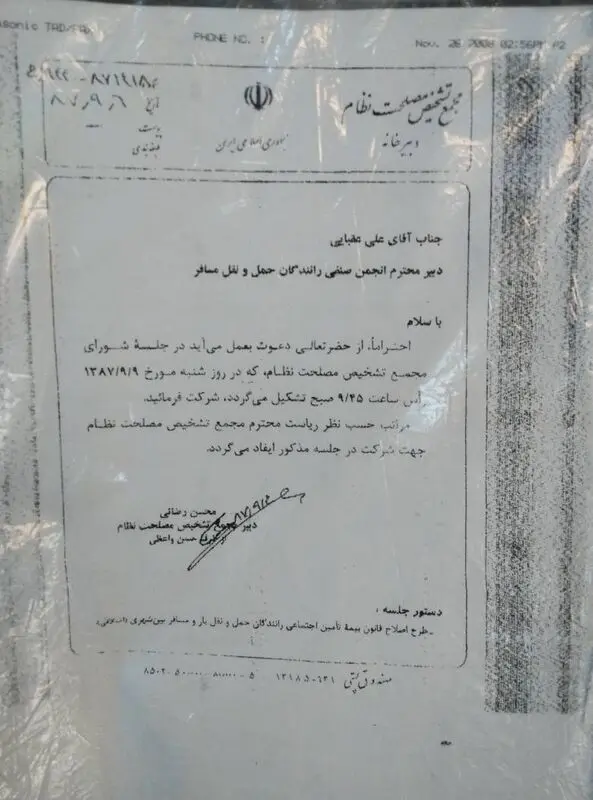 PHONE NO. :
Nov. 26 2008 02:56PM P2
مجمع تشخیص مصلحت نظام
دبیرخانه
جمهوری اسلامی ایران
تاریخ ۸۷٫۹٫۶
پیوست
طبقه‌بندی
جناب آقای علی عقبایی
دبیر محترم انجمن صنفی رانندگان حمل و نقل مسافر
با سلام
احتراماً، از حضرتعالی دعوت بعمل می‌آید در جلسهٔ شورای
مجمع تشخیص مصلحت نظام، که در روز شنبه مورخ ۱۳۸۷/۹/۹
رأس ساعت ۹/۴۵ صبح تشکیل می‌گردد، شرکت فرمائید.
مراتب حسب نظر ریاست محترم مجمع تشخیص مصلحت نظام
جهت شرکت در جلسه مذکور ایفاد می‌گردد.
محسن رضائی
دبیر مجمع تشخیص مصلحت نظام
از طرف حسن واعظی
دستور جلسه :
ـ طرح اصلاح قانون بیمهٔ تأمین اجتماعی رانندگان حمل و نقل بار و مسافر بین‌شهری
صندوق پستی ۱۳۱۸۵-۹۳۱